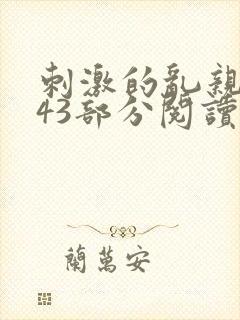 刺激的亂親
43部分閱讀
蘭萬安